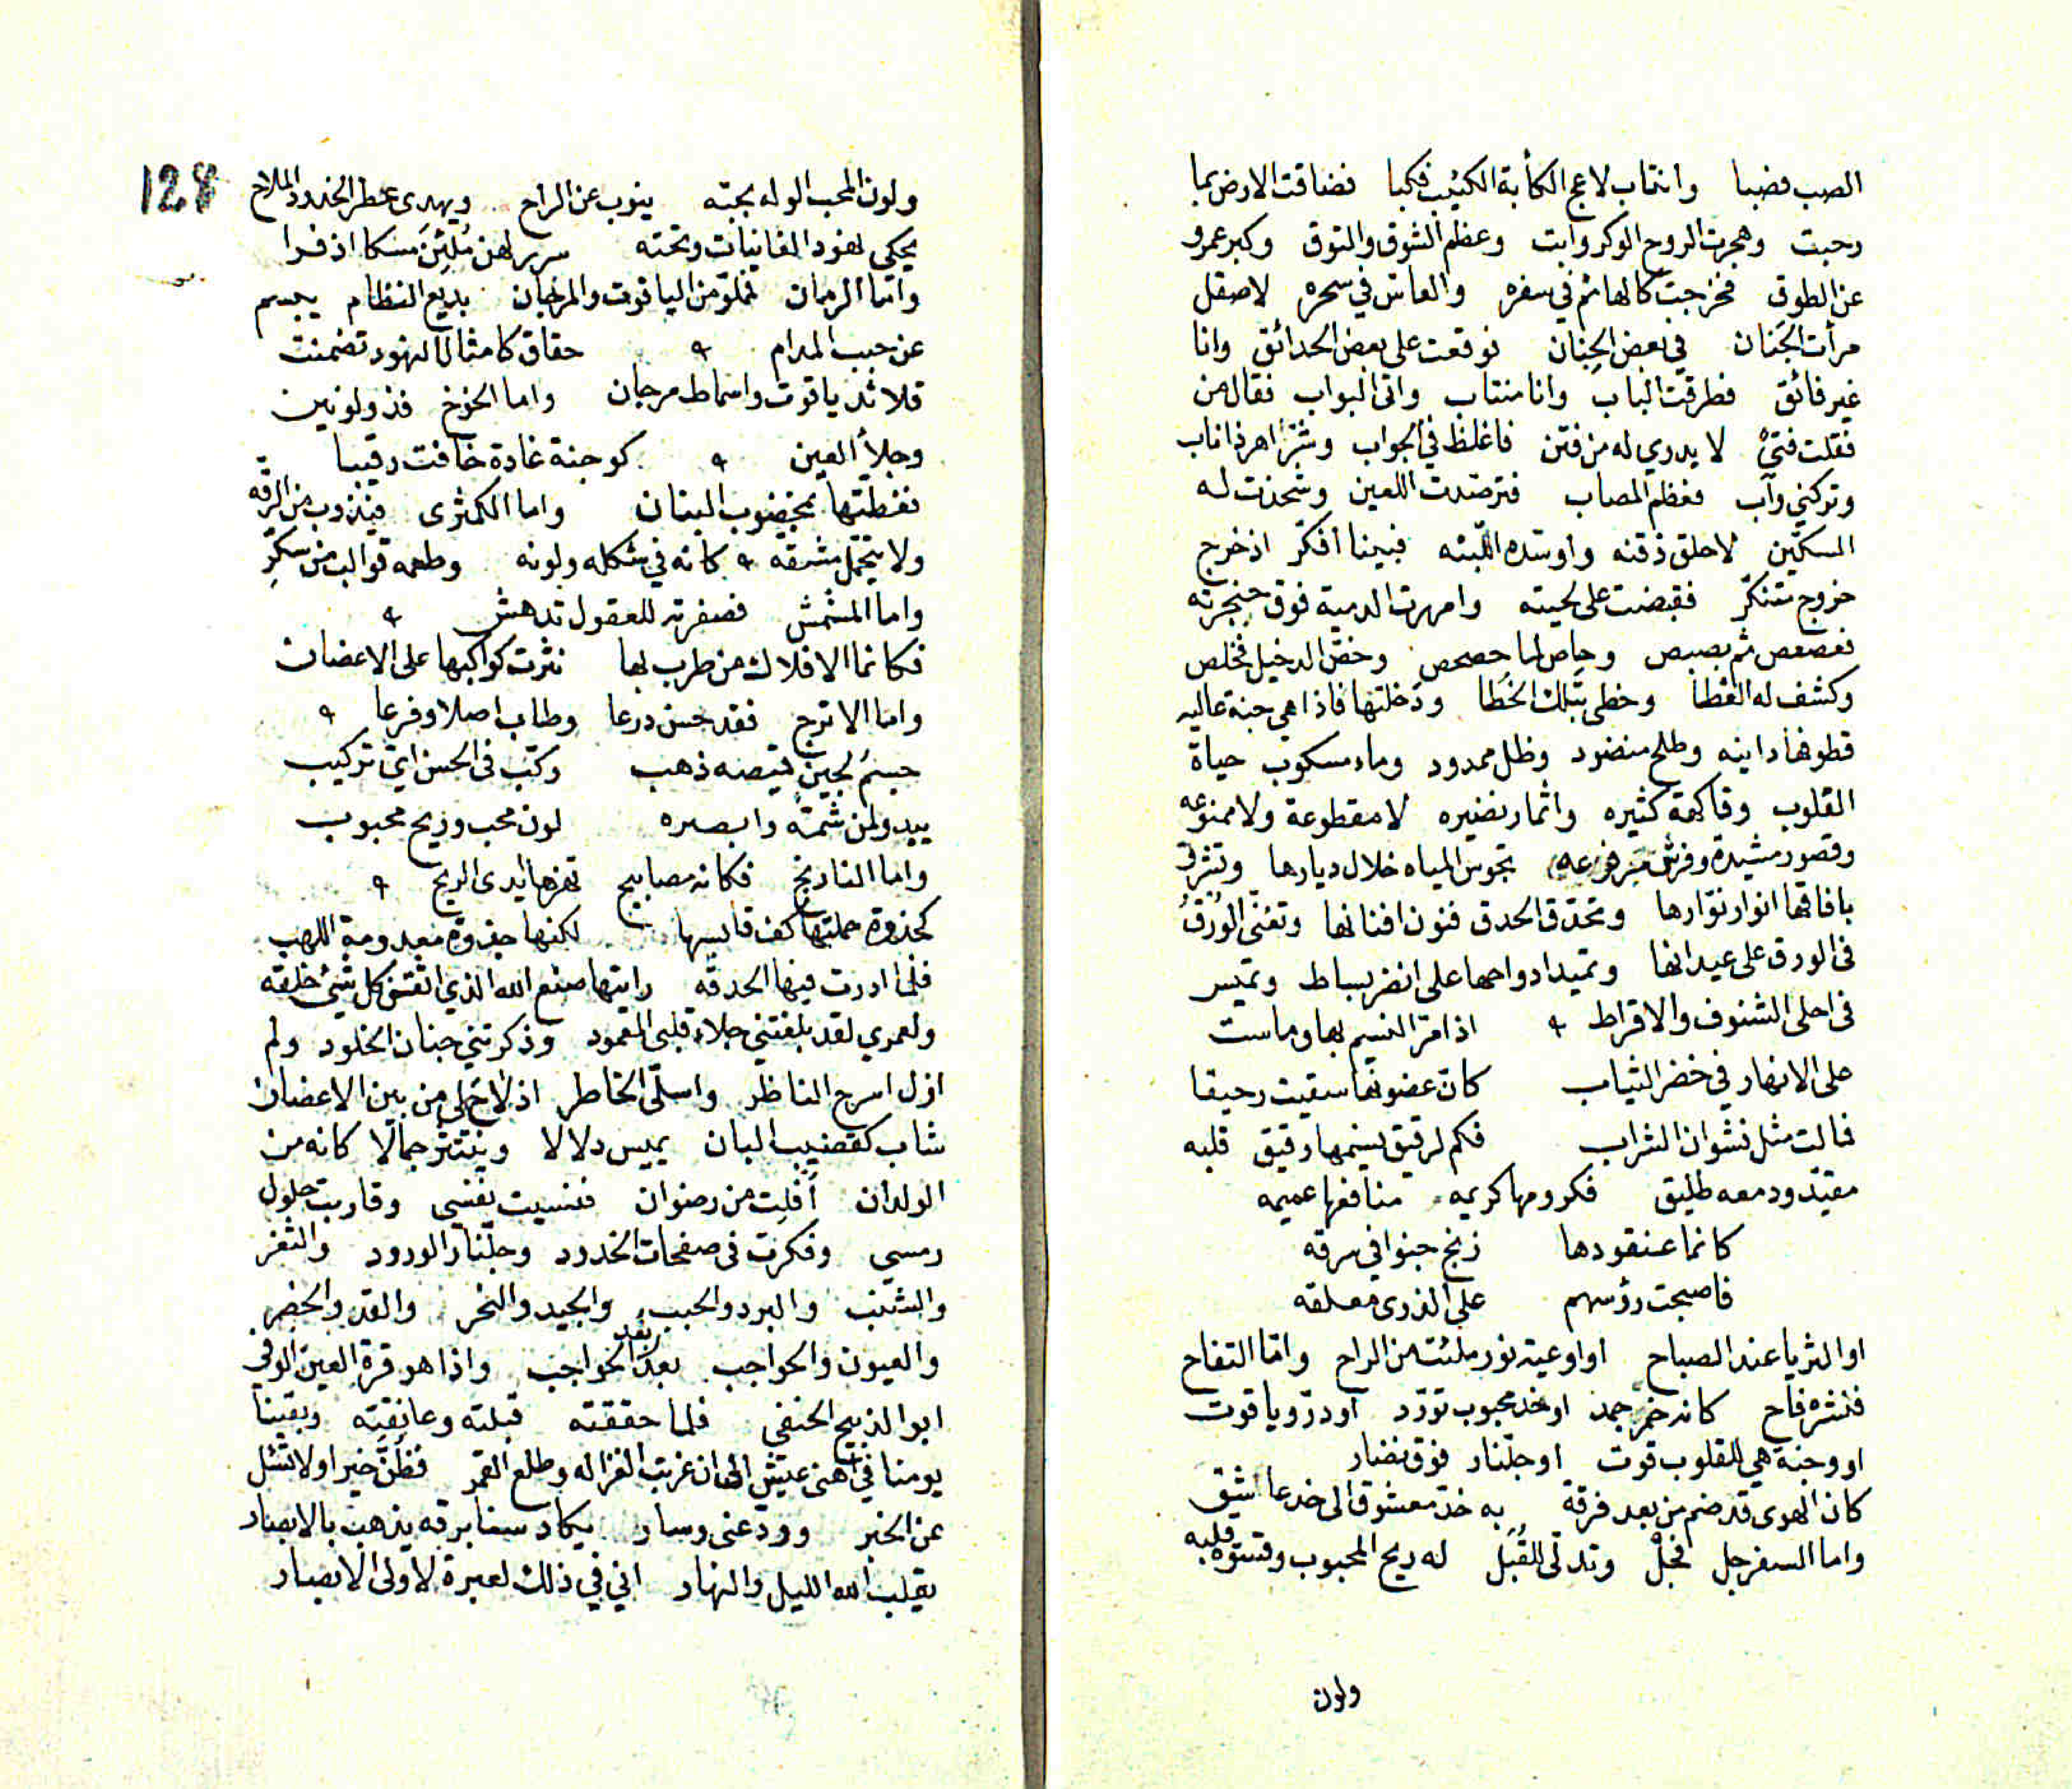 الصب فضبا وانتاب لاعج الكأبة الكئيب فكبا فضاقت الارض بما
رحبت وهجرت الروح الوكر وابت وعظم الشوق والتوق وكبر عمرو
عن الطوق فخرجت كالهائم في سفره والعاس في سحره لاصقل
مرأت الجَنان في بعض الجِنان فوقعت على بعض الحدائق وانا
غير فائق فطرقت الباب وانا منتاب واتى البواب فقال من
فقلت فتىً لا يدري له من فتن فاغلظ في الجواب وشرّ اهر ذا ناب
وتركني وآب فعظم المصاب فترصّدت اللعين وشحذت له
السكّين لاحلق ذقنه واوسّده اللّبنه فبينما أفكّر اذ خرج
خروج متنكّر فقبضت على لحيته وامررت المدية فوق حنجرته
فعصعص ثم بصبص وحاص لما حصحص وخصّ الدخيل فخلص
وكشف له الغطا وخطى بتلك الخُطا ودخلتها فاذا هي جنة عاليه
قطوفها دانيه وطلح منضود وظل ممدود وماء مسكوب حياة
القلوب وفاكهة كثيره واثمار نضيره لا مقطوعة ولا ممنوعه
وقصور مشيدة وفرش مرفوعه تجوس المياه خلال ديارها وتشرق
بافاقها انوار نوّارها وتحدّق الحدق فنون افنانها وتغنّى الوُرْقُ
في الورق على عيدانها وتميد ادواحها على انضر بساط وتميس
في احلى الشنوف والاقراط ۹ اذا مرّ النسيم بها وماست
على الانهار في خضر الثياب كانّ غصونها سقيت رحيقا
فمالت مثل نشوان الشراب فكم لرقيق نسيمها رقيق قلبه
مقيّد ودمعه طليق فكرومها كريمه منافعها عميمه
كانما عنقودها زنج جنوا في سرقه
فاصبحت رؤسهم على الذرى معلقه
او الثريا عند الصباح او اوعية نور ملئت من الراح وامّا التفاح
فنشره فاح كانه خمر جمد او خد محبوب تورّد او درّ وياقوت
او وجنة هي للقلوب قوت او جلّنار فوق نضار
كان الهوى قد ضم من بعد فرقة به خدّ معشوق الى خد عاشق
واما السفرجل فجلّ وتدلّى للقُبَل له ريح المحبوب وقسوة قلبه
ولون
128
ولون المحب الوله بحبّه ينوب عن الراح ويهدى عطر الخدود الملاح
يحكى نهود الغانيات وتحته سرر لهن مُلِئْنَ مسكا اذفرا
وامّا الرمان فملؤ من الياقوت والمرجان بديع النظام يبسم
عن حبب المدام ۹ حقاق كامثال النهود تضمنت
قلائد ياقوت واسماط مرجان واما الخوخ فذو لونين
وجلأ العين ۹ كوجنة غادة خافت رقيبا
فغطّتها بمخضوب البنان واما الكمثرى فيذوب من الرقّه
ولا يتحمّل مشقّه ۹ كانه في شكله ولونه وطعمه قوالب من سكّرِ
واما المشمش فصفرته للعقول تدهش ۹
فكانما الافلاك من طرب بها نثرت كواكبها على الاغصان
واما الاترج فقد حسن درعا وطاب اصلا وفرعا ۹
جسمُ لجين قميصه ذهب ركّب في الحسن اىّ تركيب
يبدو لمن شمّه وابصره لون محب وريح محبوب
واما النارنج فكانه مصابيح تهزها ايدى الريح ۹
كجذوة حملتها كف قابسها لكنها جذوة معدومة اللهب
فلما ادرت فيها الحدقه رايتها صنع الله الذي اتقن كل شيئ خلقه
ولعمري لقد بلغتني جلاء قلبى المعمود وذكرتني جنان الخلود ولم
ازل اسرح الناظر واسلّى الخاطر اذ لاح لى من بين الاغصان
شاب كقضيب البان يميس دلالا وينتثر جمالا كانه من
الولدان أفلِت من رضوان فنسيت نفسى وقاربت حلول
رمسي وفكرت في صفحات الخدود وجلّنار الورود والثغر
والشنب والبرد والحبب والجيد والنحر والقد والخصر
والعيون والحواجب بعد الحواجب واذا هو قرة العين الوفي
ابو الذبيح الحنفى فلما حققته قبلته وعانقته وبقينا
يومنا في اهنى عيش الى ان غربت الغزاله وطلع القمر فظُنَّ خيرا ولا تسئل
عن الخبر وودعنى وسار يكاد سنا برقه يذهب بالابصار
يقلب الله الليل والنهار ان في ذلك لعبرة لاولى الابصار